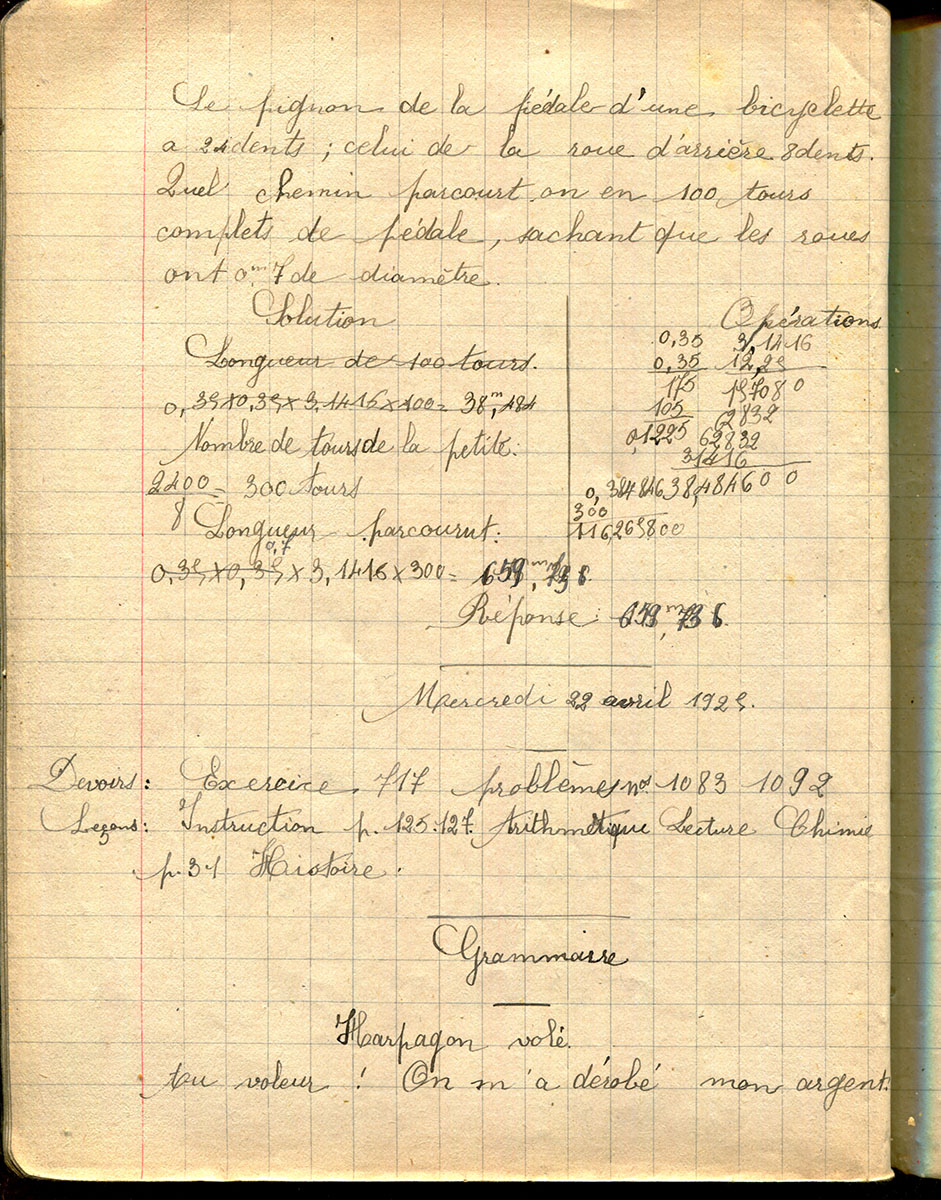 Le pignon de la pédale d'une bicyclette
a 24 dents ; celui de la roue d'arrière 8 dents.
Quel chemin parcourt on en 100 tours
complets de pédale, sachant que les roues
ont 0m,7 de diamètre.
Solution
Longueur de 100 tours.
0,35 x 0,35 x 3,1416 x 100 = 38m,484
Nombre de tours de la petite :
2400/8 = 300 tours
Longueur parcourut :
0,7
0,35 x 0,35 x 3,1416 x 300 = 659m,736
Réponse : 659m,736.
Opérations
0,35 3,1416
0,35 12,25
175 15708 0
105 62832
0,1225 62832
31416
0,384846 38,4846 0 0
300
116,265800
Mercredi 22 avril 1925.
Devoirs : Exercice 717 problèmes nos 1083 1092
Leçons : Instruction p. 125.127. Arithmétique Lecture Chimie
p. 31 Histoire.
Grammaire
Harpagon volé.
Au voleur ! On m'a dérobé mon argent.